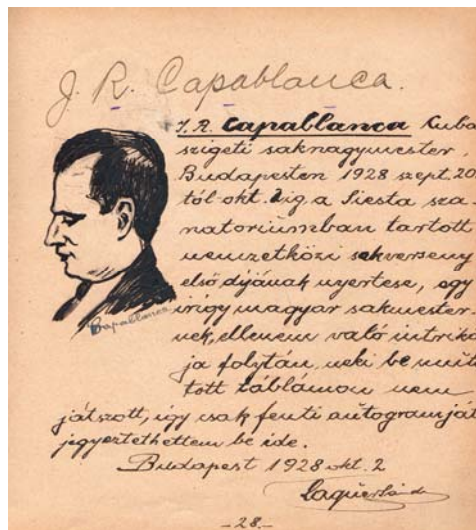 J. R. Capablanca.
J. R. Capablanca Cuba
szigeti saknagymester
Budapesten 1928 szept. 20
tól okt. 2ig a Siesta sza-
natoriumban tartott
nemzetközi sakverseny
első díjának nyertese, egy
irigy magyar sakmester-
nek, ellenem való intriká
ja folytán, neki be mutt
tott táblámon nem
játszott, így csak fenti autogramját
jegyeztethettem be ide.
Budapest 1928 okt. 2
Capablanca
-28.-